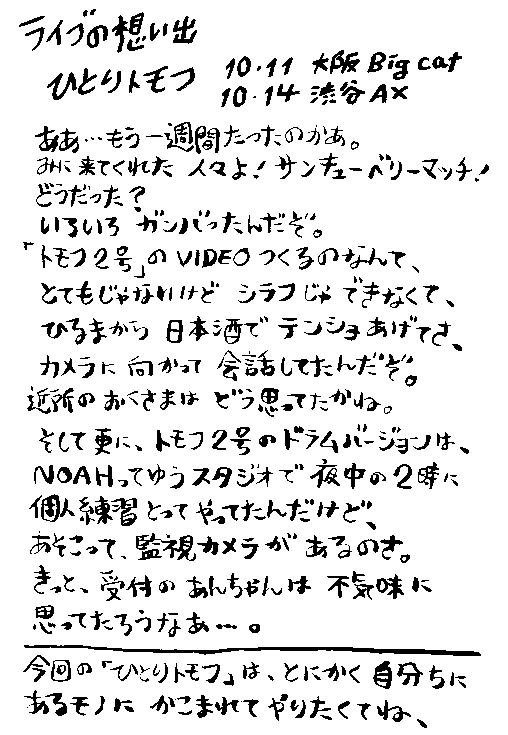 ライブの想い出
ひとりトモフ 10.11 大阪 Big cat
10.14 渋谷 AX
ああ…もう一週間たったのかあ。
みに来てくれた 人々よ! サンキューベリーマッチ!
どうだった?
いろいろ ガンバったんだぞ。
「トモフ2号」の VIDEO つくるのなんて、
とてもじゃなれけど シラフじゃ できなくて、
ひるまから 日本酒で テンショあげてさ、
カメラに 向かって 会話してたんだぞ。
近所の おくさまは どう思ってたかね。
そして更に、トモフ2号のドラムバージョンは、
NOAHってゆうスタジオで 夜中の2時に
個人練習とって やってたんだけど、
あそこって、監視カメラが あるのさ。
きっと、受付の あんちゃんは 不気味に
思ってたろうなあ…。
今回の「ひとりトモフ」は、とにかく 自分ちに
あるモノに かこまれて やりたくてね、